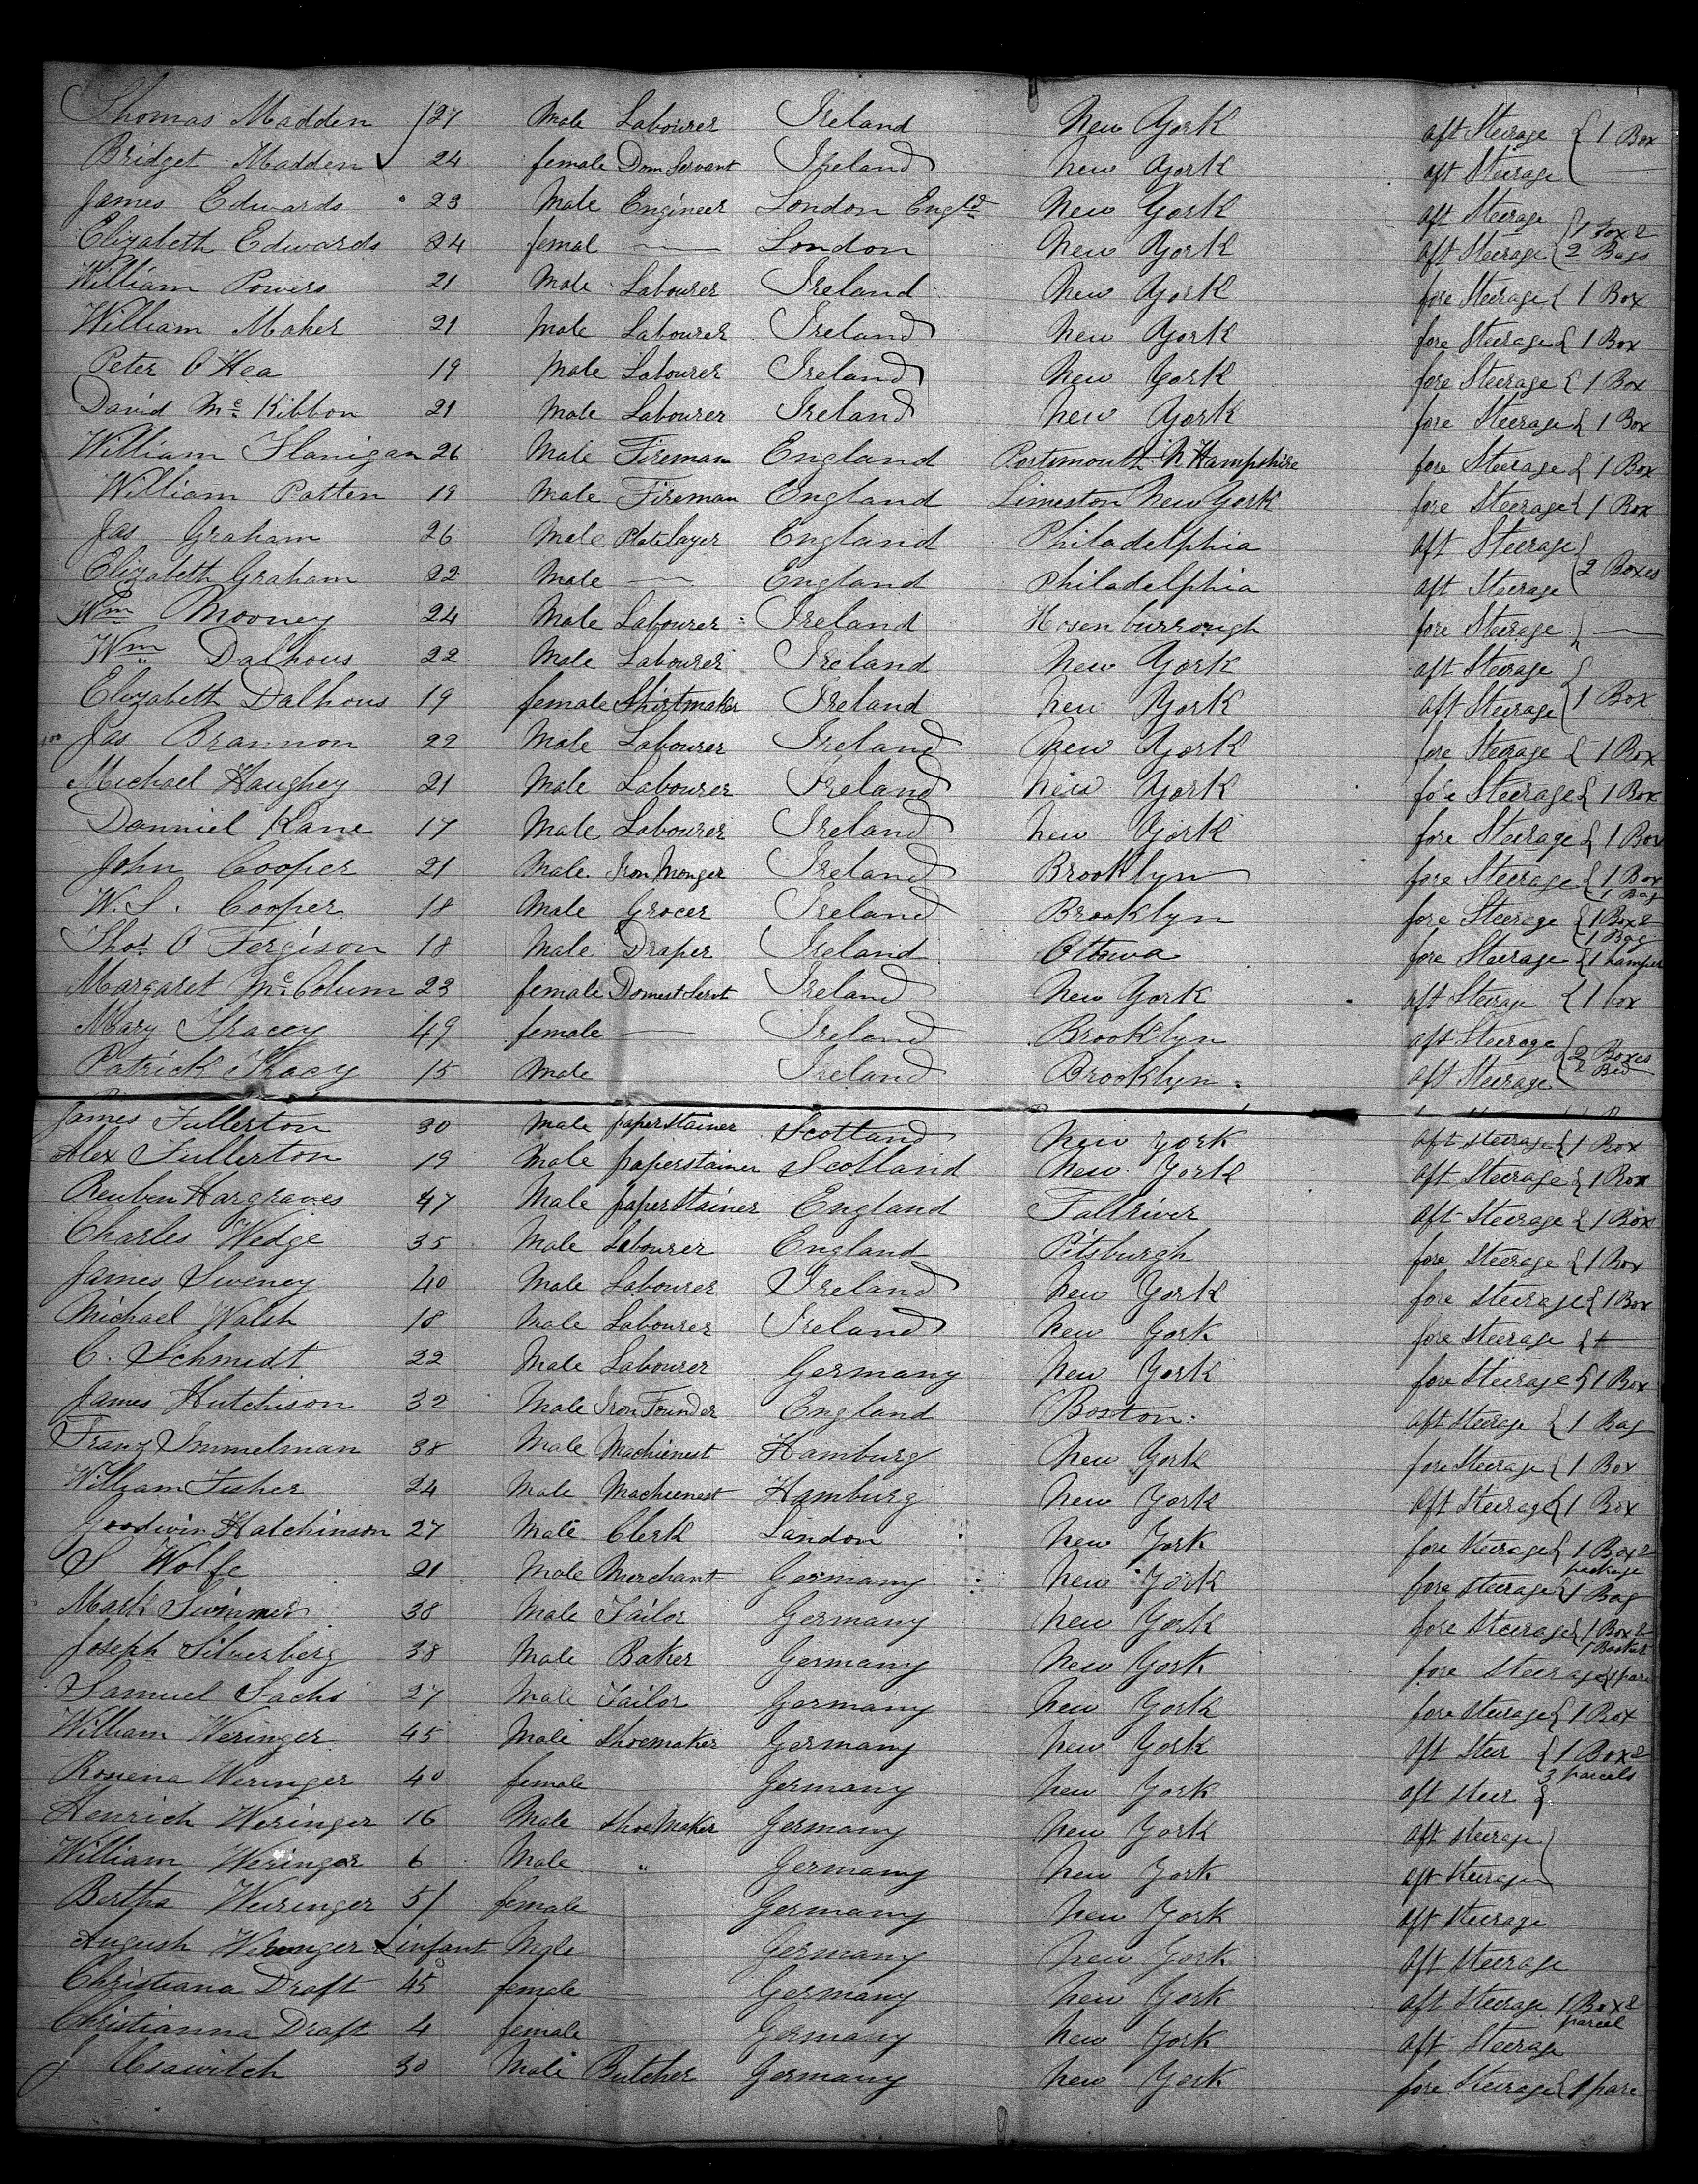 Thomas Madden 27 Male Labourer Ireland New York aft Steerage { 1 Box
Bridget Madden 24 female Dom Servant Ireland New York aft Steerage
James Edwards 23 Male Engineer London Engld New York aft Steerage
Elizabeth Edwards 24 femal — London New York aft Steerage { 1 Box & 2 Bags
William Powers 21 Male Labourer Ireland New York fore Steerage { 1 Box
William Maher 21 Male Labourer Ireland New York fore Steerage { 1 Box
Peter O Hea 19 Male Labourer Ireland New York fore Steerage { 1 Box
David Mc Kibbon 21 Male Labourer Ireland New York fore Steerage { 1 Box
William Flanigan 26 Male Fireman England Portsmouth N Hampshire fore Steerage { 1 Box
William Patten 19 Male Fireman England Limeston New York fore Steerage { 1 Box
Jas Graham 26 Male Platelayer England Philadelphia aft Steerage
Elizabeth Graham 22 Male — England Philadelphia aft Steerage { 2 Boxes
Wm Mooney 24 Male Labourer Ireland Hosenburrough fore Steerage { —
Wm Dalhous 22 Male Labourer Ireland New York aft Steerage
Elizabeth Dalhous 19 female Shirtmaker Ireland New York aft Steerage { 1 Box
Jas Brannon 22 Male Labourer Ireland New York fore Steerage { 1 Box
Michael Haughey 21 Male Labourer Ireland New York fore Steerage { 1 Box
Danniel Kane 17 Male Labourer Ireland New York fore Steerage { 1 Box
John Cooper 21 Male Iron Monger Ireland Brooklyn fore Steerage { 1 Box 1 Bag
W. S. Cooper 18 Male Grocer Ireland Brooklyn fore Steerage { 1 Box & 1 Bag
Thos O Fergison 18 Male Draper Ireland Ottowa fore Steerage { 1 hamper
Margaret Mc Colum 23 female Domest Servt Ireland New York aft Steerage { 1 box
Mary Tracey 49 female — Ireland Brooklyn aft Steerage { 2 Boxes
Patrick Tracy 15 Male Ireland Brooklyn aft Steerage & Bed
James Fullerton 30 Male paperstainer Scotland New York aft steerage { 1 Box
Alex Fullerton 19 Male paperstainer Scotland New York aft Steerage { 1 Box
Reuben Hargraves 47 Male paperstainer England Fallriver aft Steerage { 1 Box
Charles Wedge 35 Male Labourer England Pitsburgh fore Steerage { 1 Box
James Sweney 40 Male Labourer Ireland New York fore steerage { 1 Box
Michael Walsh 18 Male Labourer Ireland New York fore steerage {
C. Schmidt 22 Male Labourer Germany New York fore Steerage { 1 Box
James Hutchison 32 Male Iron Founder England Boston aft steerage { 1 Bag
Franz Immelman 38 Male Machienest Hamburg New York fore Steerage { 1 Box
William Fisher 24 Male Machienest Hamburg New York aft Steerage { 1 Box
Goodwin Hatchinson 27 Male Clerk London New York fore Steerage { 1 Box & package
S Wolfe 21 Male Merchant Germany New York fore steerage { 1 Bag
Mark Swimmer 38 Male Tailor Germany New York fore Steerage { 1 Box & 1 Basket
Joseph Silverberg 38 Male Baker Germany New York fore steerage { 1 parc
Samuel Sachs 27 Male Tailor Germany New York fore Steerage { 1 Box
William Weringer 45 Male Shoemaker Germany New York aft Steer { 1 Box & 3 parcels
Rosena Weringer 40 female Germany New York aft steer {
Henrich Weringer 16 Male ShoeMaker Germany New York aft steerage
William Weringer 6 Male " Germany New York aft Steerage
Bertha Weringer 5 female Germany New York aft steerage
August Weringer infant Male Germany New York aft Steerage
Christiana Draft 45 female — Germany New York aft Steerage 1 Box & parcel
Christianna Draft 4 female Germany New York aft Steerage
J 30 Male Butcher Germany New York fore Steerage { 1 parc